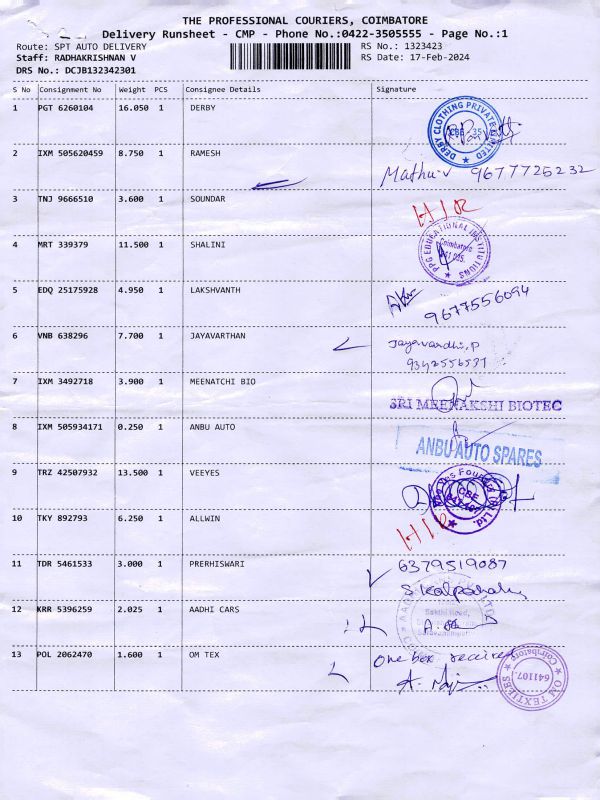 THE PROFESSIONAL COURIERS, COIMBATORE
Delivery Runsheet - CMP - Phone No.:0422-3505555 - Page No.:1
Route: SPT AUTO DELIVERY RS No.: 1323423
Staff: RADHAKRISHNAN V RS Date: 17-Feb-2024
DRS No.: DCJB132342301
S No Consignment No Weight PCS Consignee Details Signature
1 PGT 6260104 16.050 1 DERBY
DERBY CLOTHING PRIVATE LIMITED
CBE - 35
2 IXM 505620459 8.750 1 RAMESH
Mathu.v 9677725232
3 TNJ 9666510 3.600 1 SOUNDAR
HIR
4 MRT 339379 11.500 1 SHALINI
PPG EDUCATIONAL INSTITUTIONS
Coimbatore
5 EDQ 25175928 4.950 1 LAKSHVANTH
9677556094
6 VNB 638296 7.700 1 JAYAVARTHAN
Jayavardhi.p
9342556537
7 IXM 3492718 3.900 1 MEENATCHI BIO
SRI MEENAKSHI BIOTEC
8 IXM 505934171 0.250 1 ANBU AUTO
ANBU AUTO SPARES
9 TRZ 42507932 13.500 1 VEEYES
CBE
10 TKY 892793 6.250 1 ALLWIN
HIR
11 TDR 5461533 3.000 1 PRERHISWARI
6379519087
12 KRR 5396259 2.025 1 AADHI CARS
Sakthi Road,
13 POL 2062470 1.600 1 OM TEX
One box received
OM TEXTILES
Coimbatore
641107.